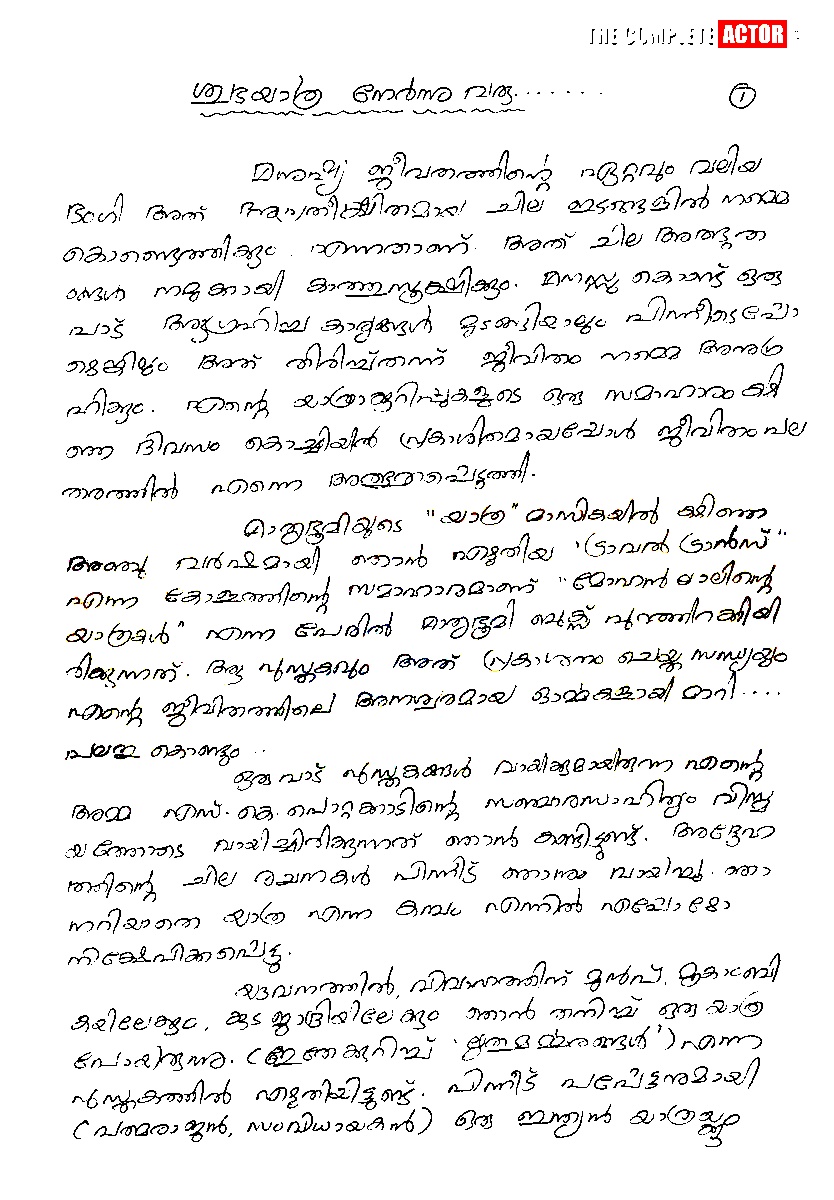 THE COMPLETE ACTOR
ശുഭയാത്ര നേർന്നു വരൂ.......
1
മനുഷ്യ ജീവിതത്തിന്റെ ഏറ്റവും വലിയ
ഭംഗി അത് അപ്രതീക്ഷിതമായ ചില ഇടങ്ങളിൽ നമ്മെ
കൊണ്ടെത്തിക്കും എന്നതാണ്. അത് ചില അത്ഭുത
ങ്ങൾ നമുക്കായി കാത്തുസൂക്ഷിക്കും. മനസ്സു കൊണ്ട് ഒരു
പാട് ആഗ്രഹിച്ച കാര്യങ്ങൾ മുടങ്ങിയാലും പിന്നീടെപ്പോ
ഴെങ്കിലും അത് തിരിച്ചുതന്ന് ജീവിതം നമ്മെ അനുഗ്ര
ഹിക്കും. എന്റെ യാത്രാകുറിപ്പുകളുടെ ഒരു സമാഹാരം കഴി
ഞ്ഞ ദിവസം കൊച്ചിയിൽ പ്രകാശിതമായപ്പോൾ ജീവിതം പല
തരത്തിൽ എന്നെ അത്ഭുതപ്പെടുത്തി.
മാതൃഭൂമിയുടെ "യാത്ര" മാസികയിൽ കഴിഞ്ഞ
അഞ്ചു വർഷമായി ഞാൻ എഴുതിയ 'ട്രാവൽ ട്രാൻസ്"
എന്ന കോളത്തിന്റെ സമാഹാരമാണ് "മോഹൻലാലിന്റെ
യാത്രകൾ" എന്ന പേരിൽ മാതൃഭൂമി ബുക്സ് പുറത്തിറക്കിയി
രിക്കുന്നത്. ആ പുസ്തകവും അത് പ്രകാശനം ചെയ്ത സന്ധ്യയും
എന്റെ ജീവിതത്തിലെ അനശ്വരമായ ഓർമ്മകളായി മാറി....
പലതു കൊണ്ടും ..
ഒരുപാട് പുസ്തകങ്ങൾ വായിക്കുമായിരുന്ന എന്റെ
അമ്മ എസ്. കെ. പൊറ്റക്കാടിന്റെ സഞ്ചാരസാഹിത്യം വിസ്മ
യത്തോടെ വായിച്ചിരിക്കുന്നത് ഞാൻ കണ്ടിട്ടുണ്ട്. അദ്ദേഹ
ത്തിന്റെ ചില രചനകൾ പിന്നീട് ഞാനും വായിച്ചു. ഞാ
നറിയാതെ യാത്ര എന്ന കമ്പം എന്നിൽ എപ്പോഴോ
നിക്ഷേപിക്കപ്പെട്ടു.
യൗവനത്തിൽ, വിവാഹത്തിന് മുൻപ്, മൂകാംബി
കയിലേക്കും, കുടജാദ്രിയിലേക്കും ഞാൻ തനിച്ച് ഒരു യാത്ര
പോയിരുന്നു. (ഇതേക്കുറിച്ച് 'ഋതുമർമ്മരങ്ങൾ') എന്ന
പുസ്തകത്തിൽ എഴുതിയിട്ടുണ്ട്. പിന്നീട് പപ്പേട്ടനുമായി
(പത്മരാജൻ, സംവിധായകൻ) ഒരു ഇന്ത്യൻ യാത്രയ്ക്കു